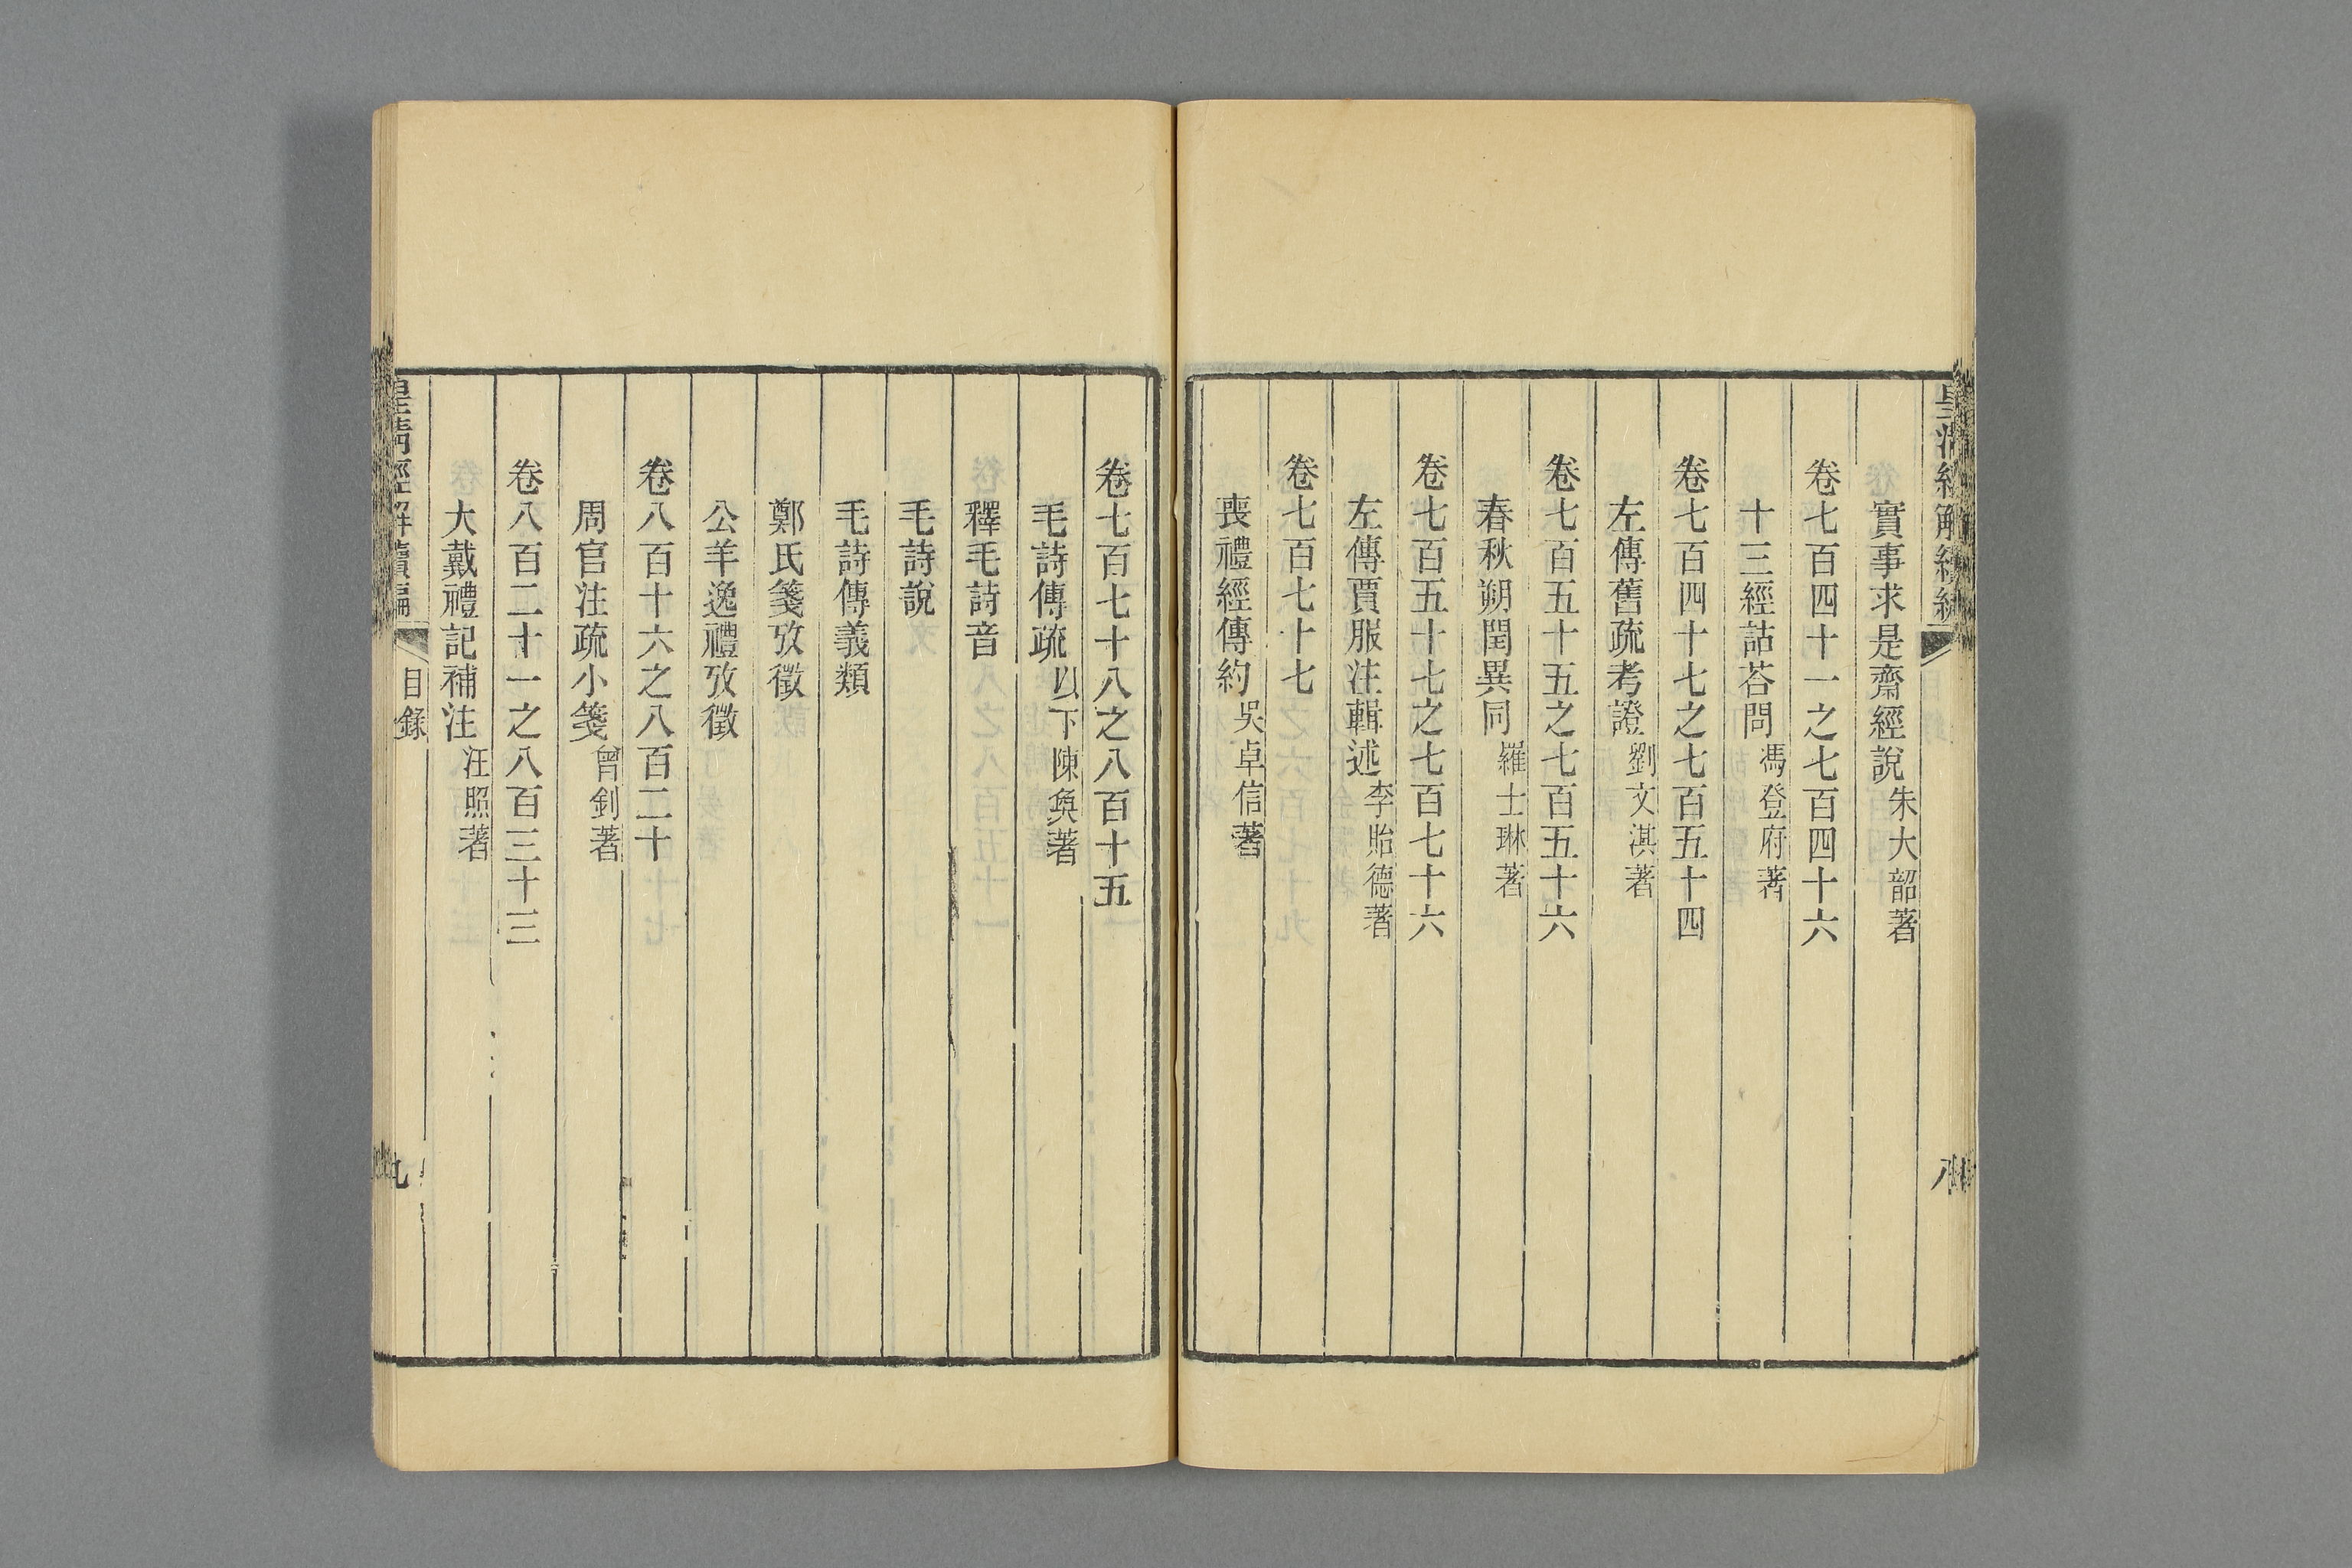 實事求是齋經說朱大韶著
卷七百四十一之七百四十六
十三經詁荅問馮登府著
卷七百四十七之七百五十四
左傳舊疏考證劉文淇著
卷七百五十五之七百五十六
春秋朔閏異同羅士琳著
卷七百五十七之七百七十六
左傳賈服注輯述李貽德著
卷七百七十七
喪禮經傳約吳卓信著
八
卷七百七十八之八百十五
毛詩傳疏以下陳奐著
釋毛詩音
毛詩說
毛詩傳義類
鄭氏箋攷徵
公羊逸禮攷徵
卷八百十六之八百二十
周官注疏小箋曾釗著
卷八百二十一之八百三十三
大戴禮記補注汪照著
皇清經解續編
目錄
九